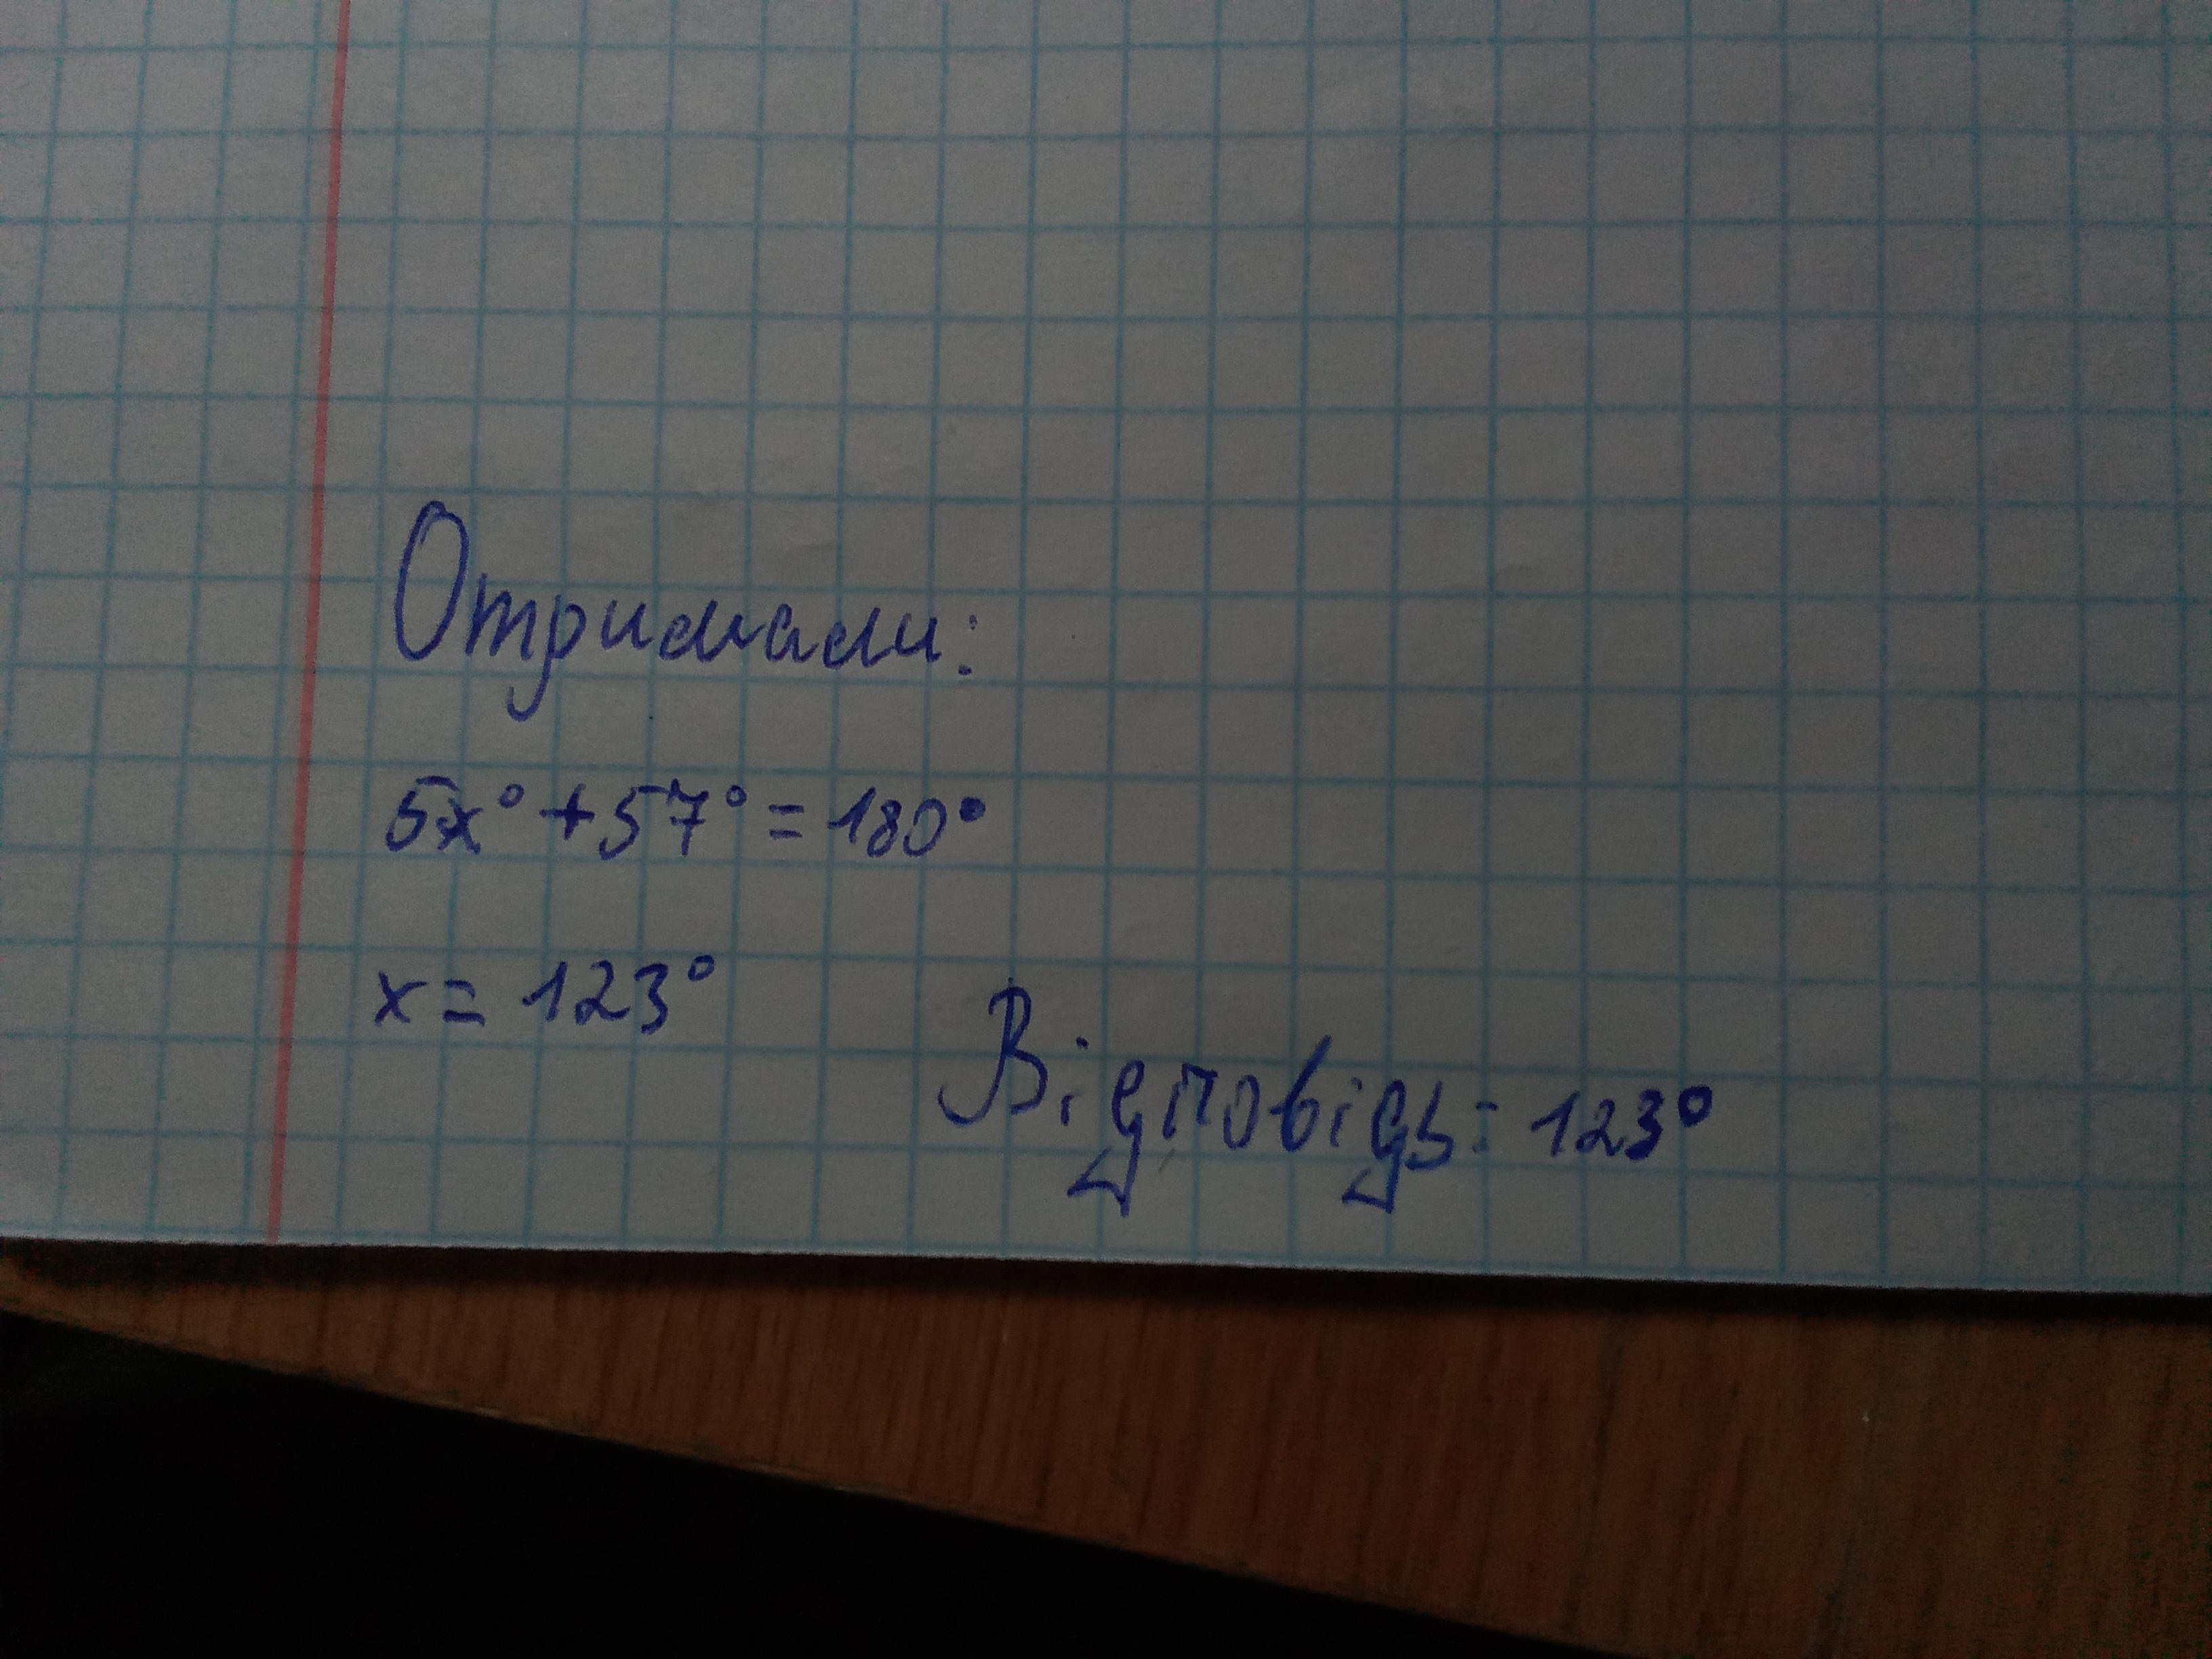 Отримали:
5x° + 57° = 180°
x = 123°
Відповідь: 123°